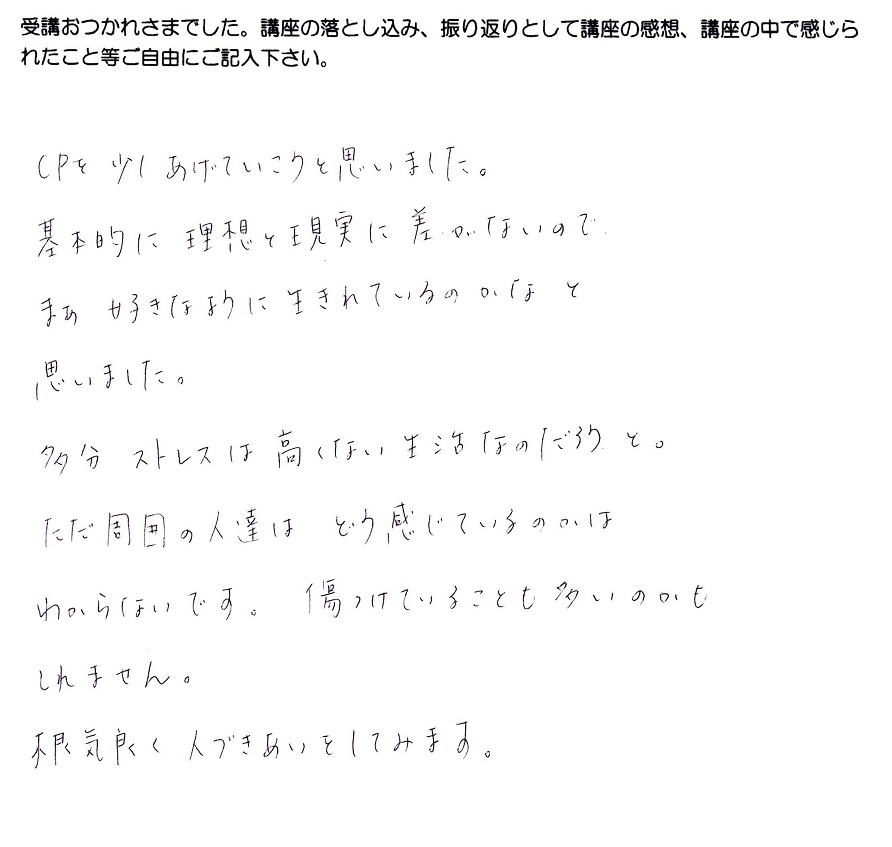 受講おつかれさまでした。講座の落とし込み、振り返りとして講座の感想、講座の中で感じら
れたこと等ご自由にご記入下さい。
CPを 少しあげていこうと思いました。
基本的に 理想と現実に 差がないので
まぁ 好きなように生きれているのかなと
思いました。
多分 ストレスは高くない生活なのだろうと。
ただ周囲の人達は どう感じているのかは
わからないです。 傷つけていることも多いのかも
しれません。
根気良く 人づきあいをしてみます。